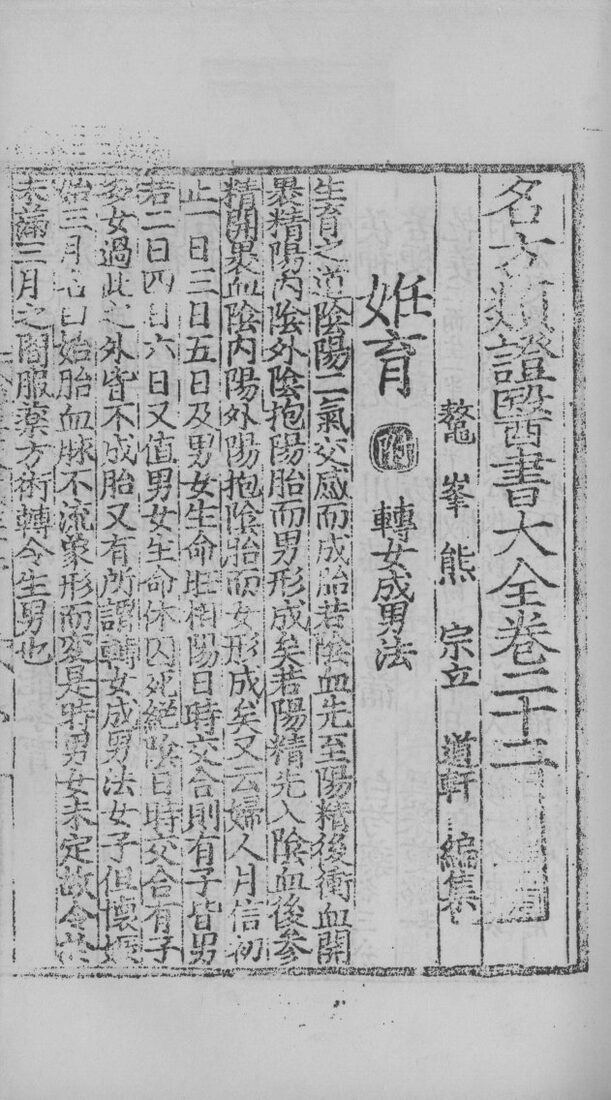 名方類證醫書大全卷二十二
鰲峯熊宗立道軒編集
妊育 附 轉女成男法
生育之道陰陽二氣交感而成胎若陰血先至陽精後衝血開
裹精陽內陰外陰抱陽胎而男形成矣若陽精先入陰血後參
精開裹血陰內陽外陽抱陰胎而女形成矣又云婦人月信初
止一日三日五日及男女生命旺相陽日時交合則有子皆男
若二日四日六日又值男女生命休囚死絕陰日時交合有子
多女過此之外皆不成胎又有所謂轉女成男法女子但懷娠
始三月名曰始胎血脉不流象形而変是時男女未定故令於
未滿三月之間服藥方術轉令生男也